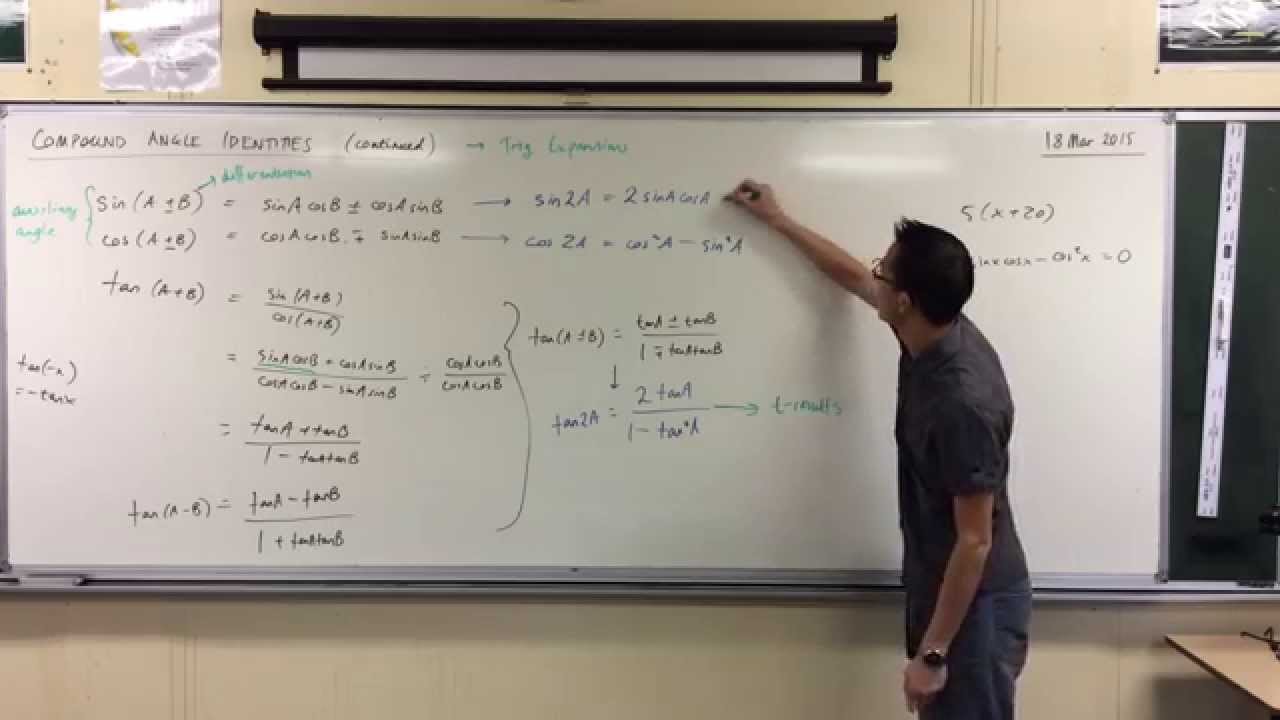 COMPOUND ANGLE IDENTITIES (continued) → Trig Expansions
18 Mar 2015
differentiation
auxiliary angle
sin(A ± B) = sinA cosB ± cosA sinB → sin2A = 2 sinA cosA
cos(A ± B) = cosA cosB ∓ sinA sinB → cos 2A = cos²A − sin²A
tan(A+B) = sin(A+B) / cos(A+B)
= sinA cosB + cosA sinB / cosA cosB − sinA sinB ÷ cosA cosB / cosA cosB
tan(-x)
= -tanx
= tanA + tanB / 1 − tanA tanB
tan(A−B) = tanA − tanB / 1 + tanA tanB
tan(A ± B) = tanA ± tanB / 1 ∓ tanA tanB
↓
tan2A = 2 tanA / 1 − tan²A → t-results
5(x+20)
sinx cosx − cos²x = 0